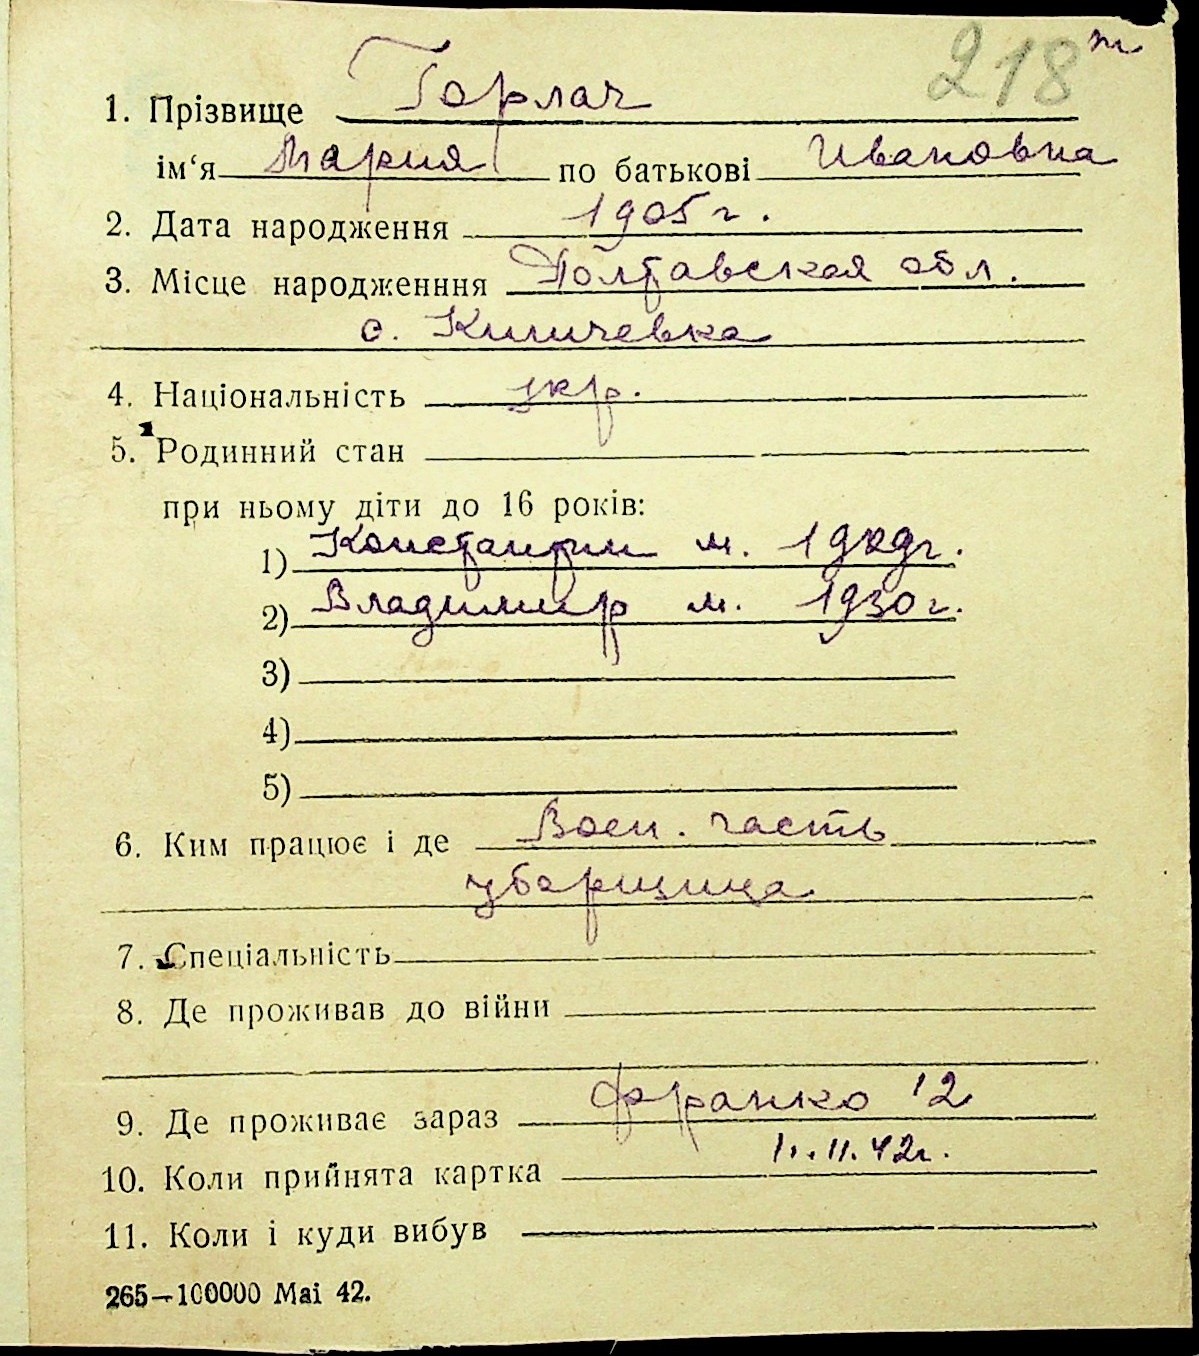 218 m
1. Прізвище Горлач
ім‘я Мария по батькові Ивановна
2. Дата народження 1905 г.
3. Місце народженння Полтавская обл.
с. Кишчевка
4. Національність укр.
5. Родинний стан
при ньому діти до 16 років:
1) Константин м. 1929 г.
2) Владимир м. 1930 г.
3)
4)
5)
6. Ким працює і де Воен. часть
уборщица
7. Спеціальність
8. Де проживав до війни
9. Де проживає зараз Франко 12
10. Коли прийнята картка 11.11.42 г.
11. Коли і куди вибув
265—100000 Mai 42.